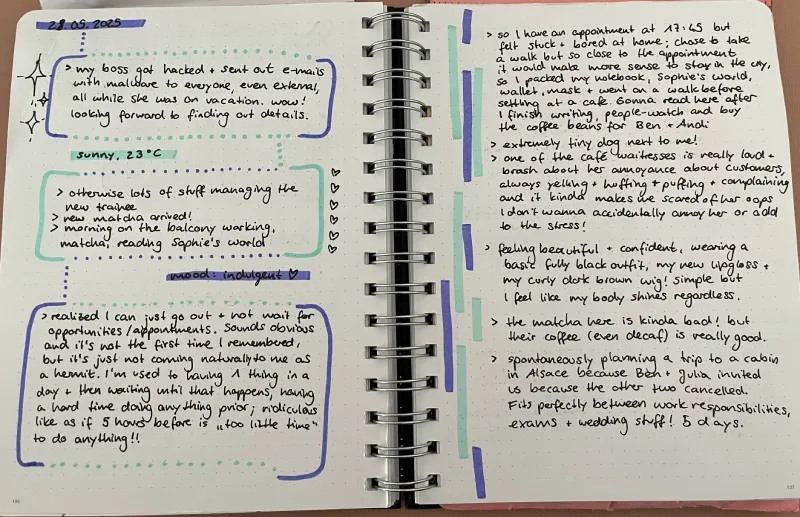 28.05.2025
> my boss got hacked + sent out e-mails
with malware to everyone, even external,
all while she was on vacation. wow!
looking forward to finding out details.
sunny, 23°C
> otherwise lots of stuff managing the
new trainee
> new matcha arrived!
> morning on the balcony working,
matcha, reading Sophie's world
mood: indulgent ♡
> realized I can just go out + not wait for
opportunities/appointments. Sounds obvious
and it's not the first time I remembered,
but it's just not coming naturally to me as
a hermit. I'm used to having 1 thing in a
day + then waiting until that happens, having
a hard time doing anything prior; ridiculous
like as if 5 hours before is „too little time"
to do anything!!
> so I have an appointment at 17:45 but
felt stuck + bored at home; chose to take
a walk but so close to the appointment
it would make more sense to stay in the city,
so I packed my notebook, Sophie's world,
wallet, mask + went on a walk before
settling at a cafe. Gonna read here after
I finish writing, people-watch and buy
the coffee beans for Ben + Andi
> extremely tiny dog next to me!
> one of the café waitresses is really loud +
brash about her annoyance about customers,
always yelling + huffing + puffing + complaining
and it kinda makes me scared of her oops
I don't wanna accidentally annoy her or add
to the stress!
> feeling beautiful + confident, wearing a
basic fully black outfit, my new lipgloss +
my curly dark brown wig! simple but
I feel like my body shines regardless.
> the matcha here is kinda bad! but
their coffee (even decaf) is really good.
> spontaneously planning a trip to a cabin
in Alsace because Ben + Julia invited
us because the other two cancelled.
Fits perfectly between work responsibilities,
exams + wedding stuff! 5 days.